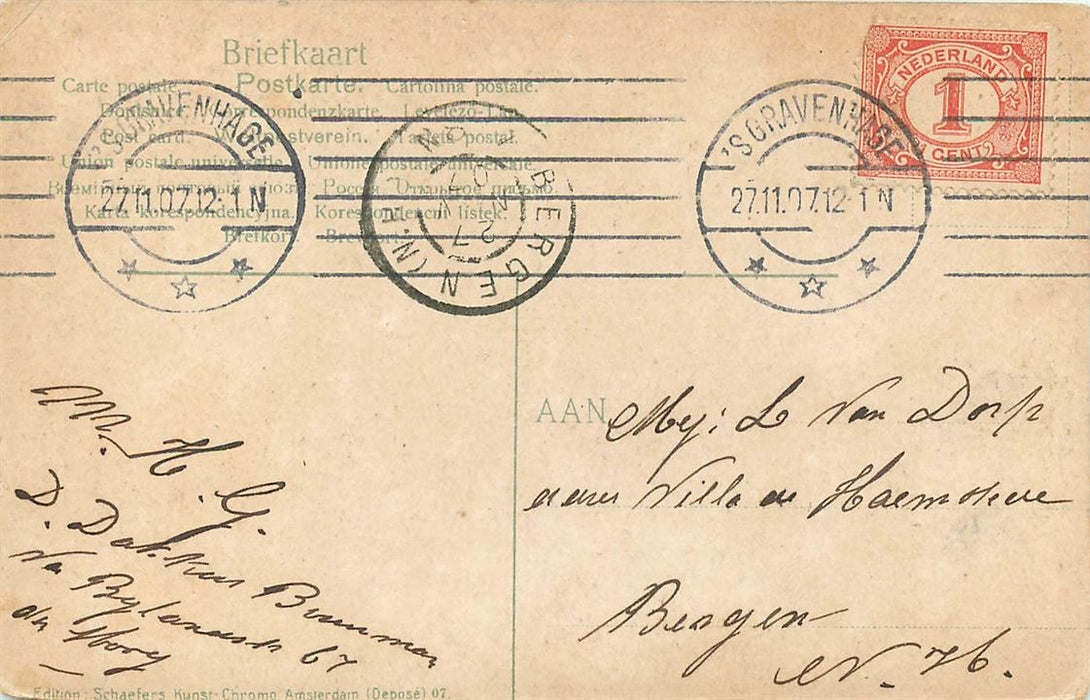 Briefkaart
Carte postale. Postkarte. Cartolina postale.
Dopisnice Correspondenzkarte Levelezö-Lap
Post card. Weltpostverein. Tarjeta postal.
Union postale universelle. Unione postale universale.
Всемірный почтовый союзъ Россія Открытое письмо.
Karta korespondencyjna. Korespondencni listek.
Brefkort.
'SGRAVENHAGE
27.11.07.12-1N
BERGEN (N.H.)
'SGRAVENHAGE
27.11.07.12-1N
NEDERLAND
1
1 CENT
AAN
Mej: L Van Dorp
Villa
Bergen
N.-H.
M. H. G.
D. Dakkus
Va Bylandtstr 67
den Haag
Edition: Schaefers Kunst-Chromo Amsterdam (Deposé) 07.